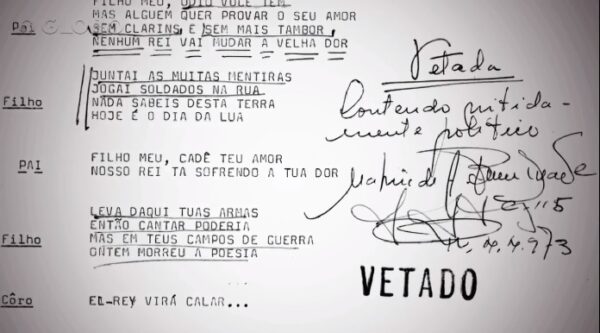 O GLOBO
FILHO MEU, ÓDIO VOCÊ TEM
MAS ALGUEM QUER PROVAR O SEU AMOR
Pai SEM CLARINS, E SEM MAIS TAMBOR,
NENHUM REI VAI MUDAR A VELHA DOR
JUNTAI AS MUITAS MENTIRAS
JOGAI SOLDADOS NA RUA
Filho NADA SABEIS DESTA TERRA
HOJE É O DIA DA LUA
PAI FILHO MEU, CADÊ TEU AMOR
NOSSO REI TA SOFRENDO A TUA DOR
LEVA DAQUI TUAS ARMAS
ENTÃO CANTAR PODERIA
Filho MAS EM TEUS CAMPOS DE GUERRA
ONTEM MORREU A POESIA
Côro EL-REY VIRÁ CALAR...
Vetada
Contendo nitida-
mente politico
VETADO